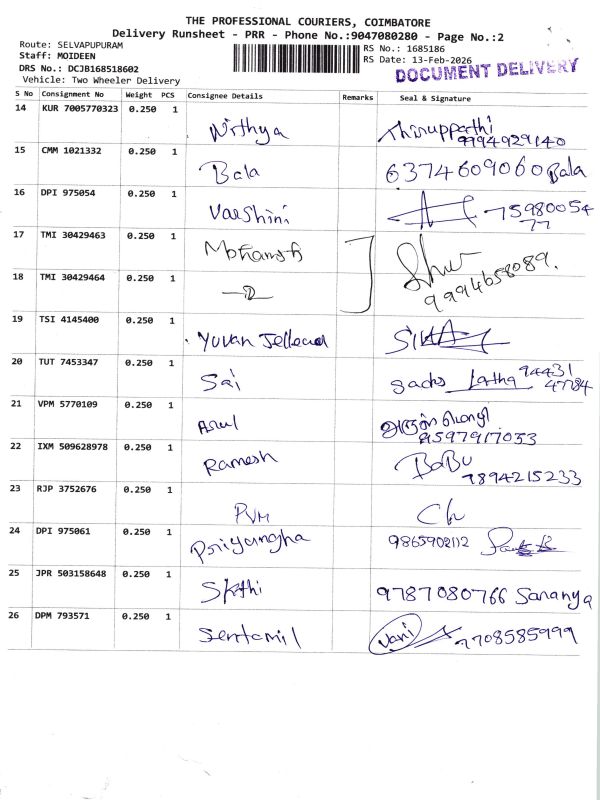 THE PROFESSIONAL COURIERS, COIMBATORE
Delivery Runsheet - PRR - Phone No.:9047080280 - Page No.:2
Route: SELVAPUPURAM
Staff: MOIDEEN
DRS No.: DCJB168518602
Vehicle: Two Wheeler Delivery
RS No.: 1685186
RS Date: 13-Feb-2026
DOCUMENT DELIVERY
S No Consignment No Weight PCS Consignee Details Remarks Seal & Signature
14 KUR 7005770323 0.250 1 Nithya Thirupathi
9994929140
15 CMM 1021332 0.250 1 Bala 6374609060 Bala
16 DPI 975054 0.250 1 Varshini 75980054
77
17 TMI 30429463 0.250 1
18 TMI 30429464 0.250 1 9994658089.
19 TSI 4145400 0.250 1 Yuvan SIVA
20 TUT 7453347 0.250 1 Sai Latha 94431
47784
21 VPM 5770109 0.250 1 Arul
9597917033
22 IXM 509628978 0.250 1 Ramesh BaBu
7894215233
23 RJP 3752676 0.250 1 PVM
24 DPI 975061 0.250 1 Priyangha 9865902112
25 JPR 503158648 0.250 1 Skthi 9787080766 Saranya
26 DPM 793571 0.250 1 Sentamil Vani 7708585999